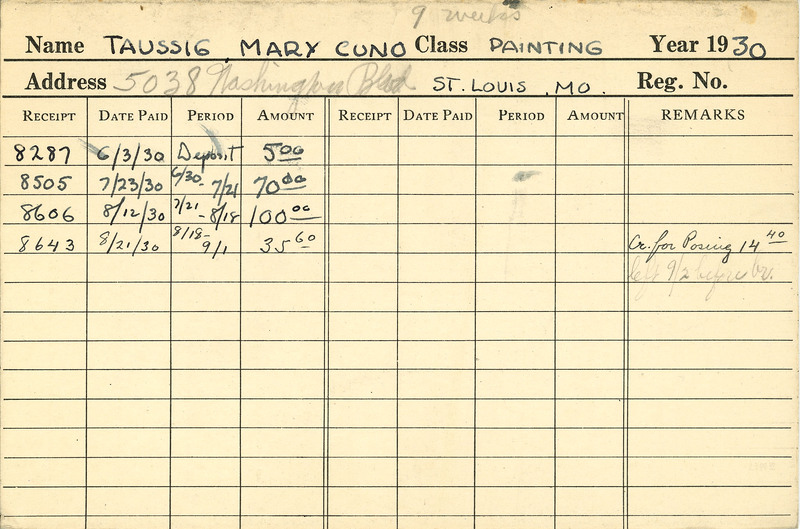 9 weeks
Name TAUSSIG, MARY CUNO Class PAINTING Year 1930
Address 5038 Washington Blvd ST. LOUIS, MO. Reg. No.
RECEIPT DATE PAID PERIOD AMOUNT RECEIPT DATE PAID PERIOD AMOUNT REMARKS
8287 6/3/30 Deposit 5.00
8505 7/23/30 6/30 - 7/21 70 00
8606 8/12/30 7/21 - 8/18 100 00
8643 8/21/30 8/18 - 9/1 35 60 Cr. for Posing 14 40
left 9/2 before